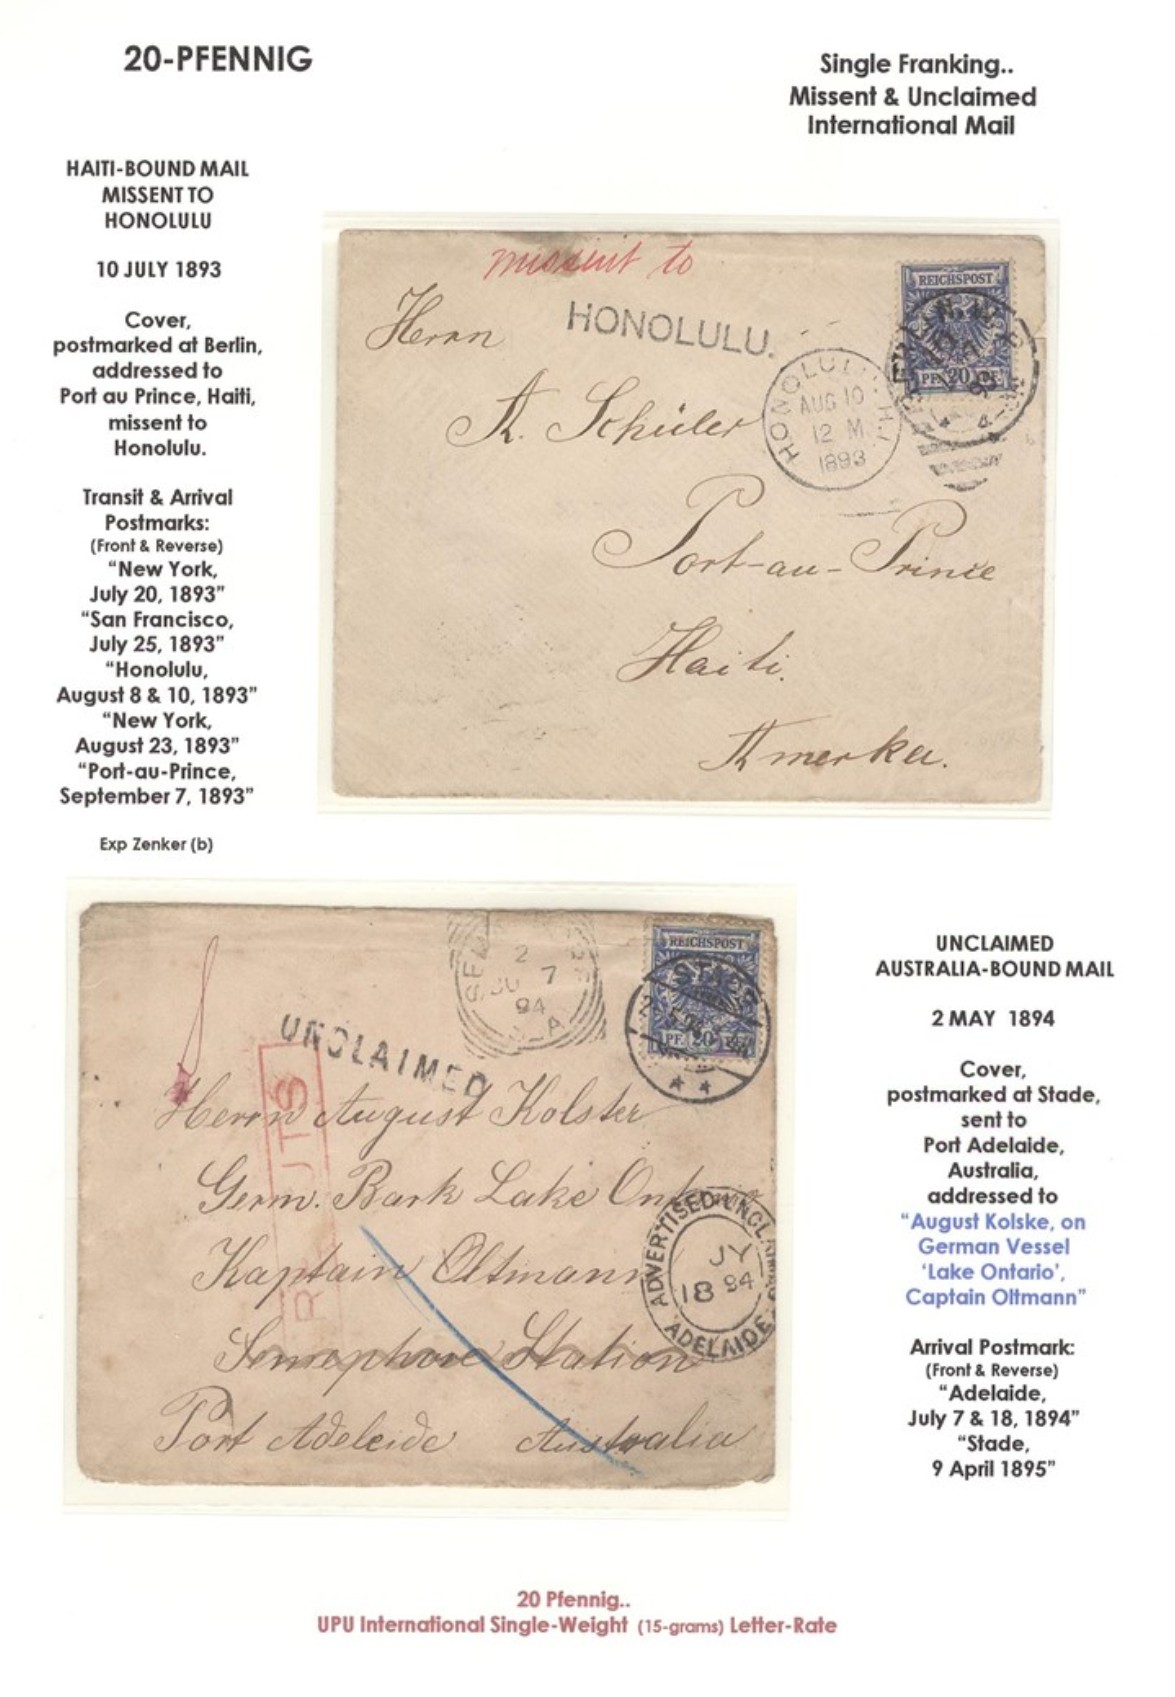 20-PFENNIG
Single Franking..
Missent & Unclaimed
International Mail
HAITI-BOUND MAIL
MISSENT TO
HONOLULU
10 JULY 1893
Cover,
postmarked at Berlin,
addressed to
Port au Prince, Haiti,
missent to
Honolulu.
Transit & Arrival
Postmarks:
(Front & Reverse)
"New York,
July 20, 1893"
"San Francisco,
July 25, 1893"
"Honolulu,
August 8 & 10, 1893"
"New York,
August 23, 1893"
"Port-au-Prince,
September 7, 1893"
Exp Zenker (b)
missent to
HONOLULU.
Herrn
A. Schüler
Port-au-Prince
Haiti.
Amerka.
REICHSPOST
PF. 20 PF.
HONOLULU H.I.
AUG 10
12 M
1893
UNCLAIMED
Herrn August Kolster
Germ. Bark Lake Ontario
Kaptain Oltmann
Semaphore Station
Port Adeleide Australia
2
JU 7
94
REICHSPOST
PF. 20 PF.
ADVERTISED UNCLAIMED
JY
18 94
ADELAIDE
UNCLAIMED
AUSTRALIA-BOUND MAIL
2 MAY 1894
Cover,
postmarked at Stade,
sent to
Port Adelaide,
Australia,
addressed to
"August Kolske, on
German Vessel
'Lake Ontario',
Captain Oltmann"
Arrival Postmark:
(Front & Reverse)
"Adelaide,
July 7 & 18, 1894"
"Stade,
9 April 1895"
20 Pfennig..
UPU International Single-Weight (15-grams) Letter-Rate